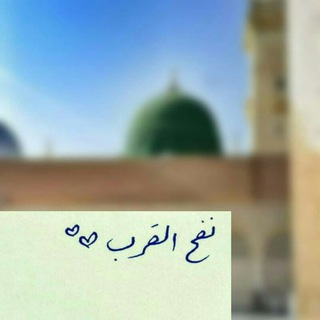 نفح القرب ♡♡